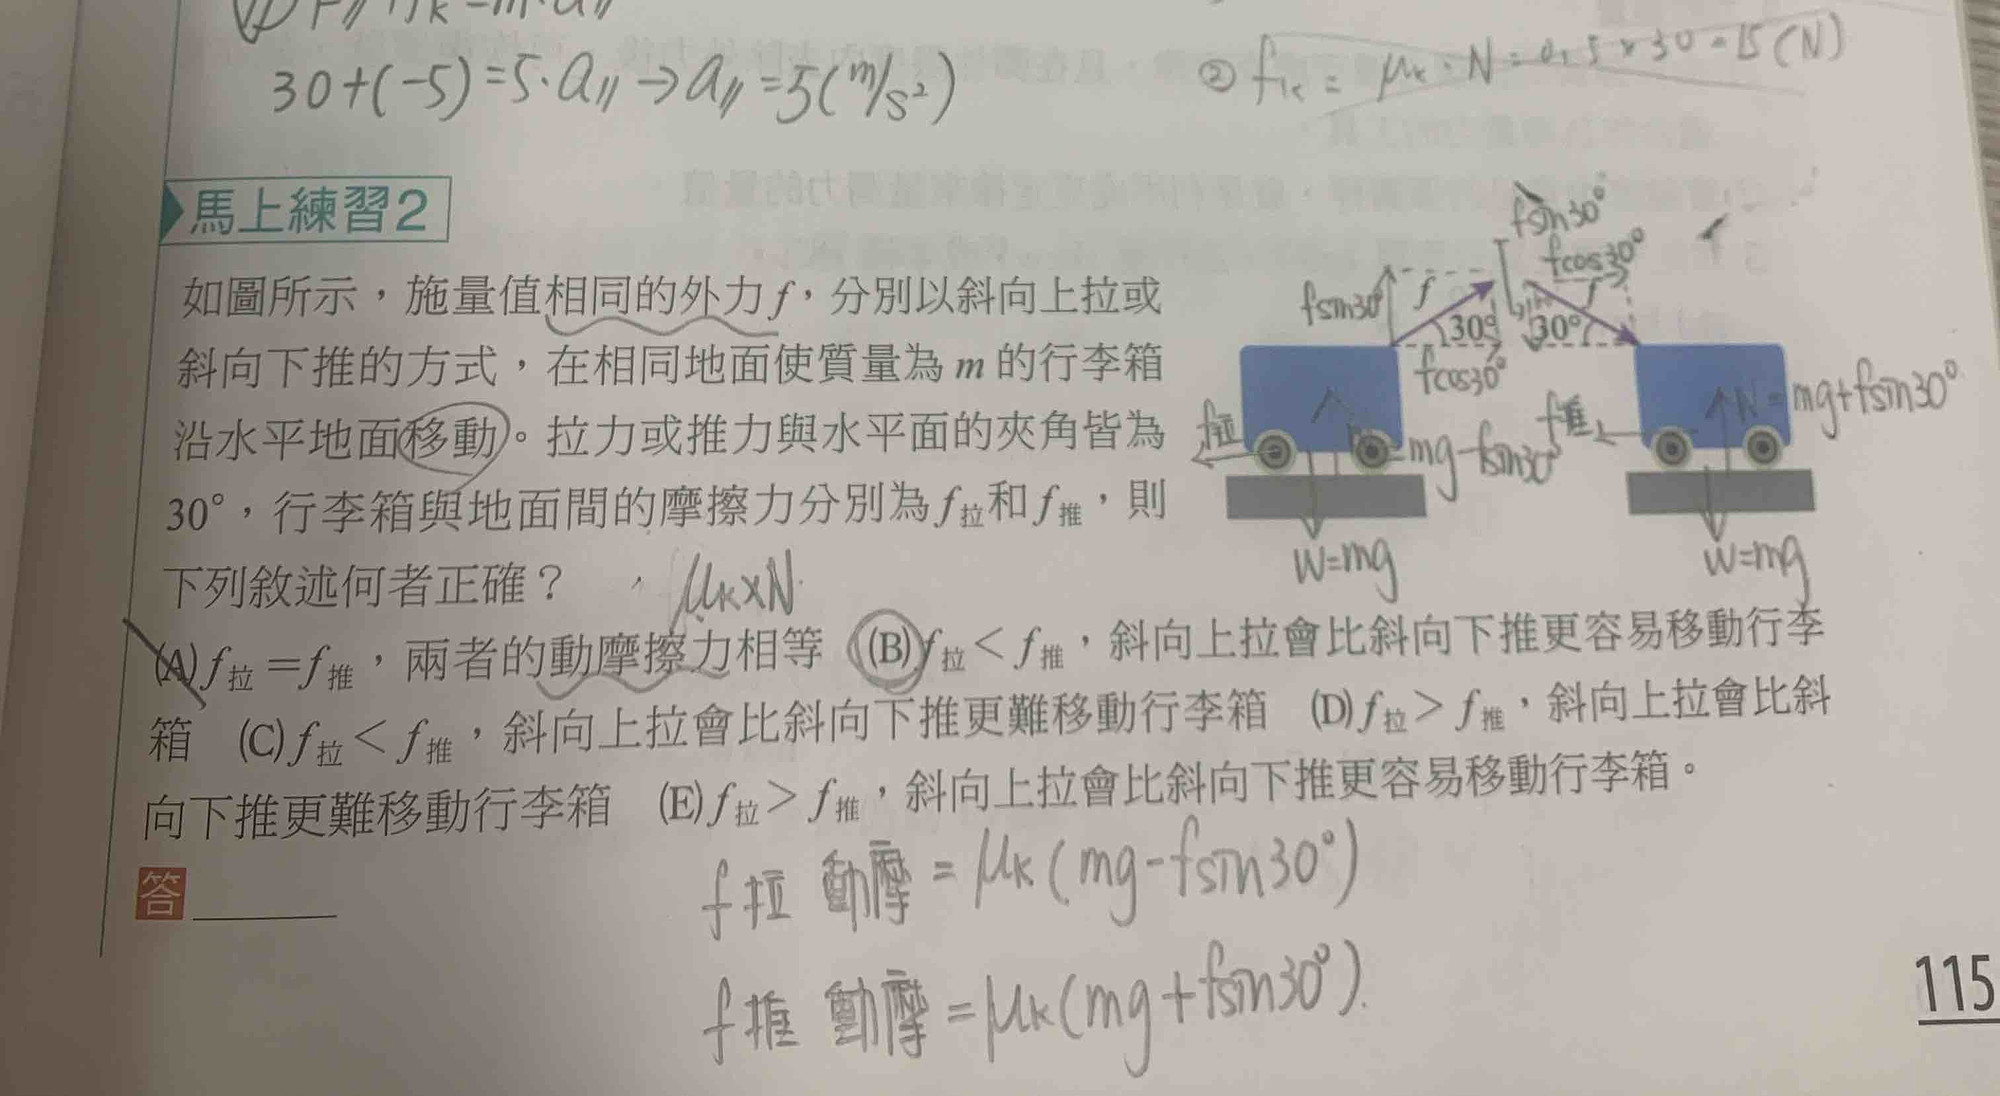 30+(-5)=5·a∥→a∥=5(m/s²)
② fk = μk·N=0.5×30=15(N)
馬上練習2
如圖所示，施量值相同的外力f，分別以斜向上拉或
斜向下推的方式，在相同地面使質量為m的行李箱
沿水平地面移動。拉力或推力與水平面的夾角皆為
30°，行李箱與地面間的摩擦力分別為f拉和f推，則
下列敘述何者正確？
μk×N
fsin30°
f
30°
fcos30°
f拉
mg-fsin30°
W=mg
fsin30°
fcos30°
f
30°
f推
N=mg+fsin30°
W=mg
(A)f拉=f推，兩者的動摩擦力相等 (B)f拉<f推，斜向上拉會比斜向下推更容易移動行李
箱 (C)f拉<f推，斜向上拉會比斜向下推更難移動行李箱 (D)f拉>f推，斜向上拉會比斜
向下推更難移動行李箱 (E)f拉>f推，斜向上拉會比斜向下推更容易移動行李箱。
答
f拉 動摩=μk(mg-fsin30°)
f推 動摩=μk(mg+fsin30°).
115